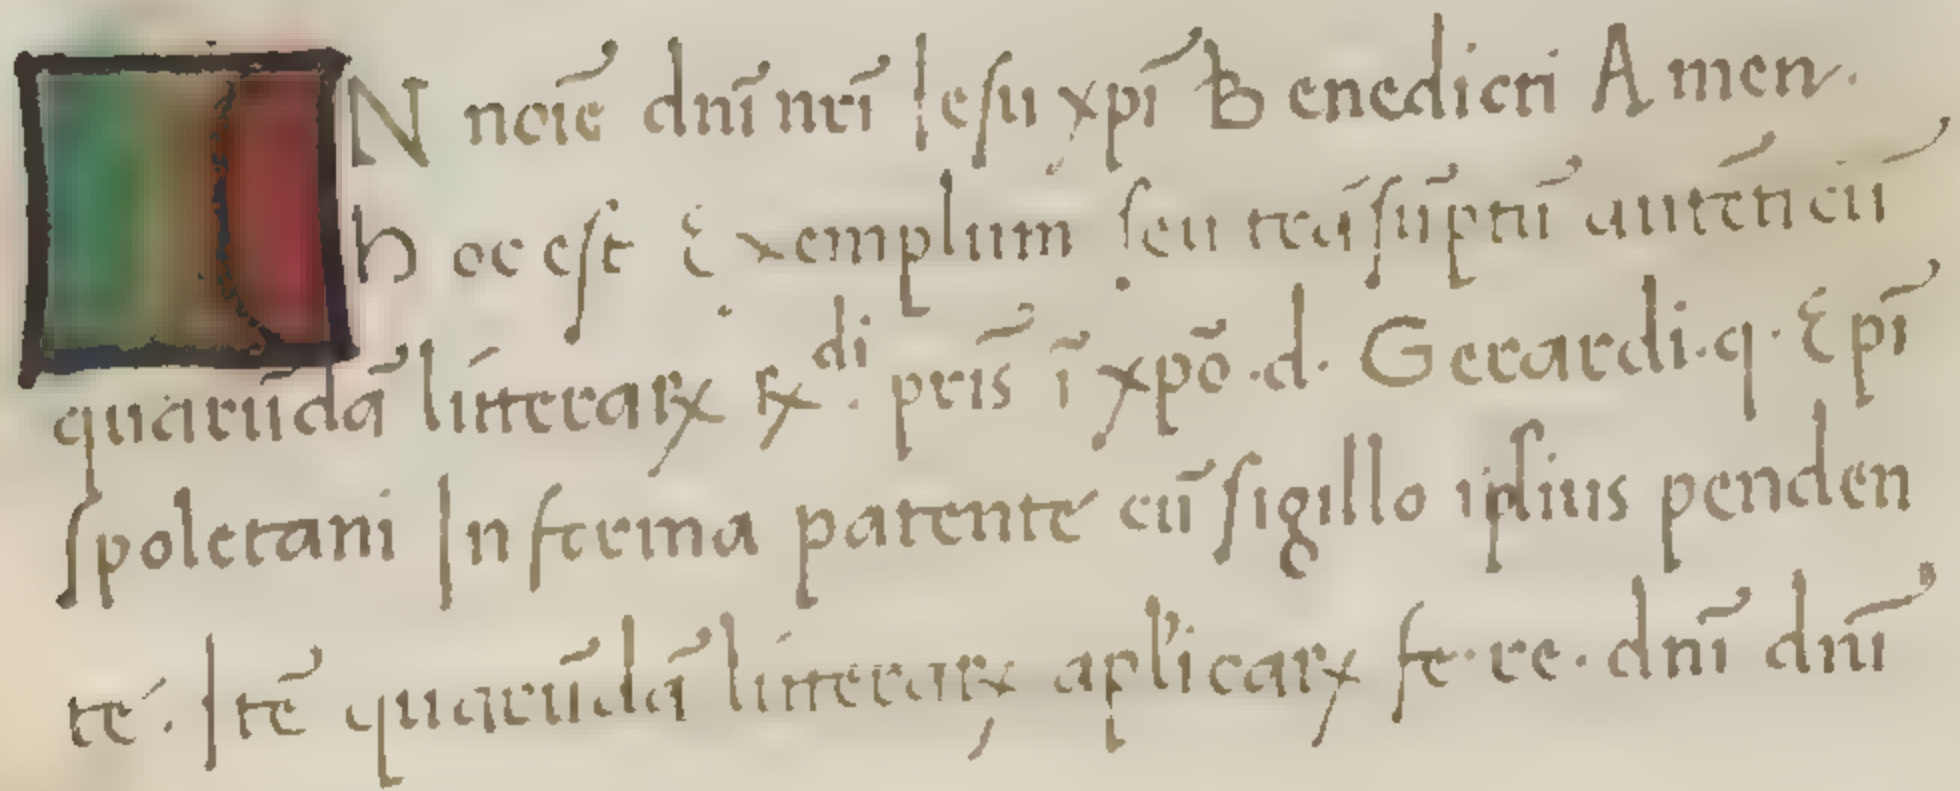 IN noīe dnī nrī Iesu xpī Benedicti Amen.
Hoc est Exemplum seu trāsūptū autētícū
quarūdā litterarꝝ ꝶdi. prīs ī xpō .d. Gerardi .q. Epī
Spoletani In forma patentē cū sigillo ipsius penden
tē. Itē quarūdā litterarꝝ aplicarꝝ fe. re. dnī dnī